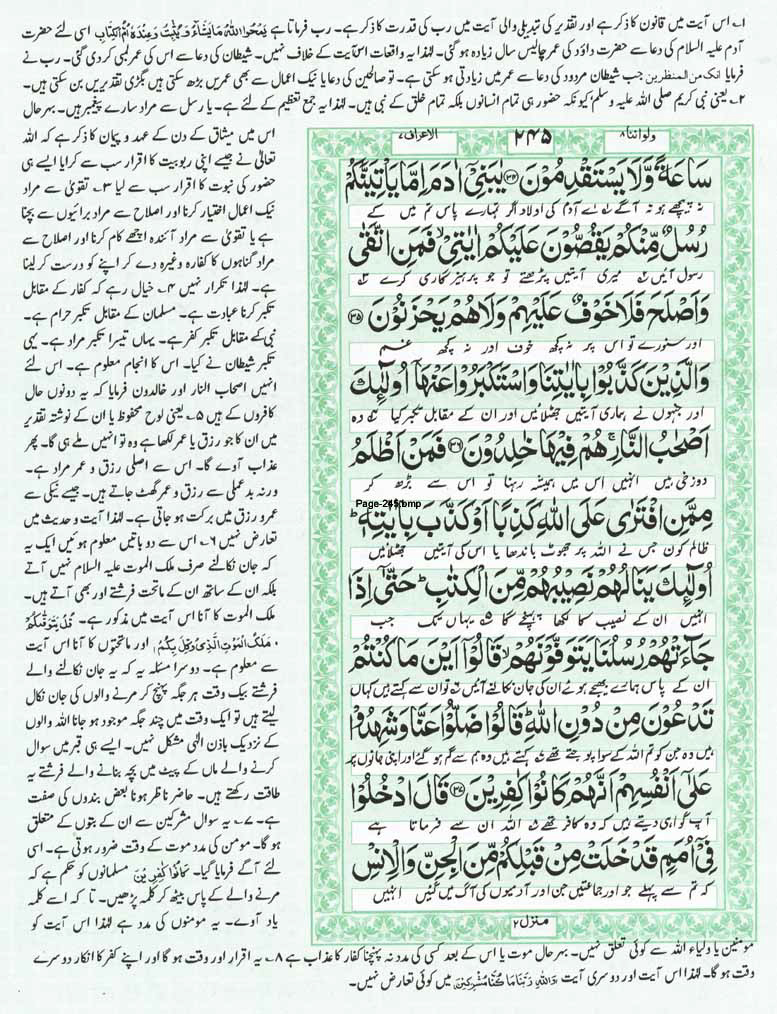 ۱؎ اس آیت میں قانون کا ذکر ہے اور تقدیر کی تبدیلی والی آیت میں رب کی قدرت کا ذکر ہے۔ رب فرماتا ہے یَمْحُوا اللّٰهُ مَا یَشَآءُ وَ یُثْبِتُ وَ عِنْدَهٗۤ اُمُّ الْکِتٰبِ اسی لئے حضرت
آدم علیہ السلام کی دعا سے حضرت داؤد کی عمر چالیس سال زیادہ ہو گئی۔ لہٰذا یہ واقعات اس آیت کے خلاف نہیں۔ شیطان کی دعا سے اس کی عمر لمبی کر دی گئی۔ رب نے
فرمایا انک من المنظرین جب شیطان مردود کی دعا سے عمر میں زیادتی ہو سکتی ہے۔ تو صالحین کی دعا یا نیک اعمال سے بھی عمریں بڑھ سکتی ہیں بگڑی تقدیریں بن سکتی ہیں۔
۲؎ یعنی نبی کریم صلی اللہ علیہ وسلم کیونکہ حضور ہی تمام انسانوں بلکہ تمام خلق کے نبی ہیں۔ لہٰذا یہ جمع تعظیم کے لئے ہے۔ یا رسل سے مراد سارے پیغمبر ہیں۔ بہرحال
اس میں میثاق کے دن کے عہد و پیمان کا ذکر ہے کہ اللہ
تعالیٰ نے جیسے اپنی ربوبیت کا اقرار سب سے کرایا ایسے ہی
حضور کی نبوت کا اقرار سب سے لیا ۳؎ تقویٰ سے مراد
نیک اعمال اختیار کرنا اور اصلاح سے مراد برائیوں سے بچنا
ہے یا تقویٰ سے مراد آئندہ اچھے کام کرنا اور اصلاح سے
مراد گناہوں کا کفارہ وغیرہ دے کر اپنے کو درست کر لینا
ہے۔ لہٰذا تکرار نہیں ۴؎ خیال رہے کہ کفار کے مقابل
تکبر کرنا عبادت ہے۔ مسلمان کے مقابل تکبر حرام ہے۔
نبی کے مقابل تکبر کفر ہے۔ یہاں تیسرا تکبر مراد ہے۔ یہی
تکبر شیطان نے کیا۔ اس کا انجام معلوم ہے۔ اس لئے
انہیں اصحاب النار اور خالدون فرمایا کہ یہ دونوں حال
کافروں کے ہیں ۵؎ یعنی لوح محفوظ یا ان کے نوشتہ تقدیر
میں ان کا جو رزق یا عمر لکھا ہے وہ تو انہیں ملے ہی گا۔ پھر
عذاب آوے گا۔ اس سے اصلی رزق و عمر مراد ہے۔
ورنہ بدعملی سے رزق و عمر گھٹ جاتے ہیں۔ جیسے نیکی سے
عمر و رزق میں برکت ہو جاتی ہے۔ لہٰذا آیت و حدیث میں
تعارض نہیں ۶؎ اس سے دو باتیں معلوم ہوئیں ایک یہ
کہ جان نکالنے صرف ملک الموت علیہ السلام نہیں آتے
بلکہ ان کے ساتھ ان کے ماتحت فرشتے اور بھی آتے ہیں۔
ملک الموت کا آنا اس آیت میں مذکور ہے۔ قُلْ یَتَوَفّٰىکُمْ
مَّلَکُ الْمَوْتِ الَّذِیْ وُکِّلَ بِکُمْ اور ماتحتوں کا آنا اس آیت
سے معلوم ہے۔ دوسرا مسئلہ یہ کہ یہ جان نکالنے والے
فرشتے بیک وقت ہر جگہ پہنچ کر مرنے والوں کی جان نکال
لیتے ہیں تو ایک وقت میں چند جگہ موجود ہو جانا اللہ والوں
کے نزدیک باذن الٰہی مشکل نہیں۔ ایسے ہی قبر میں سوال
کرنے والے ماں کے پیٹ میں بچہ بنانے والے فرشتے یہ
طاقت رکھتے ہیں۔ حاضر ناظر ہونا بعض بندوں کی صفت
ہے۔ ۷؎ یہ سوال مشرکین سے ان کے بتوں کے متعلق
ہو گا۔ مومن کی مدد موت کے وقت ضرور ہوتی ہے۔ اسی
لئے آگے فرمایا گیا۔ کَانُوْا کٰفِرِیْنَ مسلمانوں کو حکم ہے کہ
مرنے والے کے پاس بیٹھ کر کلمہ پڑھیں۔ تا کہ اسے کلمہ
یاد آوے۔ یہ مومنوں کی مدد ہے لہٰذا اس آیت کو
ولواننا ۸ ۲۴۵ الاعراف ۷
سَاعَةً وَّلَا یَسْتَقْدِمُوْنَ ۝۳۴ یٰبَنِیْۤ اٰدَمَ اِمَّا یَاْتِیَنَّکُمْ
نہ پیچھے ہو نہ آگے اے آدم کی اولاد اگر تمہارے پاس تم میں کے
رُسُلٌ مِّنْکُمْ یَقُصُّوْنَ عَلَیْکُمْ اٰیٰتِیْ ۙ فَمَنِ اتَّقٰی
رسول آئیں میری آیتیں پڑھتے تو جو پرہیزگاری کرے
وَاَصْلَحَ فَلَا خَوْفٌ عَلَیْهِمْ وَلَا هُمْ یَحْزَنُوْنَ ۝۳۵
اور سنورے تو اس پر نہ کچھ خوف اور نہ کچھ غم
وَالَّذِیْنَ کَذَّبُوْا بِاٰیٰتِنَا وَاسْتَکْبَرُوْا عَنْهَاۤ اُولٰٓئِکَ
اور جنہوں نے ہماری آیتیں جھٹلائیں اور ان کے مقابل تکبر کیا وہ
اَصْحٰبُ النَّارِ ۚ هُمْ فِیْهَا خٰلِدُوْنَ ۝۳۶ فَمَنْ اَظْلَمُ
دوزخی ہیں انہیں اس میں ہمیشہ رہنا تو اس سے بڑھ کر
Page-245.bmp
مِمَّنِ افْتَرٰی عَلَی اللّٰهِ کَذِبًا اَوْ کَذَّبَ بِاٰیٰتِهٖ ؕ
ظالم کون جس نے اللہ پر جھوٹ باندھا یا اس کی آیتیں جھٹلائیں
اُولٰٓئِکَ یَنَالُهُمْ نَصِیْبُهُمْ مِّنَ الْکِتٰبِ ؕ حَتّٰۤی اِذَا
انہیں ان کے نصیب کا لکھا پہنچے گا یہاں تک جب
جَآءَتْهُمْ رُسُلُنَا یَتَوَفَّوْنَهُمْ ۙ قَالُوْۤا اَیْنَ مَا کُنْتُمْ
ان کے پاس ہمارے بھیجے ہوئے ان کی جان نکالنے آئیں تو ان سے کہتے ہیں کہاں
تَدْعُوْنَ مِنْ دُوْنِ اللّٰهِ ؕ قَالُوْا ضَلُّوْا عَنَّا وَشَهِدُوْا
ہیں وہ جن کو تم اللہ کے سوا پوجتے تھے کہتے ہیں وہ ہم سے گم ہو گئے اور اپنی جانوں پر
عَلٰۤی اَنْفُسِهِمْ اَنَّهُمْ کَانُوْا کٰفِرِیْنَ ۝۳۷ قَالَ ادْخُلُوْا
آپ گواہی دیتے ہیں کہ وہ کافر تھے اللہ ان سے فرماتا ہے
فِیْۤ اُمَمٍ قَدْ خَلَتْ مِنْ قَبْلِکُمْ مِّنَ الْجِنِّ وَالْاِنْسِ
کہ تم سے پہلے جو اور جماعتیں جن اور آدمیوں کی آگ میں گئیں انہیں
منزل ۲
مومنین یا اولیاء اللہ سے کوئی تعلق نہیں۔ بہرحال موت یا اس کے بعد کسی کی مدد نہ پہنچنا کفار کا عذاب ہے ۸؎ یہ اقرار اور وقت ہو گا اور اپنے کفر کا انکار دوسرے
وقت ہو گا۔ لہٰذا اس آیت اور دوسری آیت وَاللّٰهِ رَبِّنَا مَا کُنَّا مُشْرِکِیْنَ میں کوئی تعارض نہیں۔